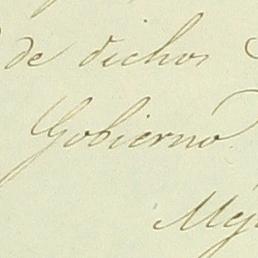 de dichos
Gobierno